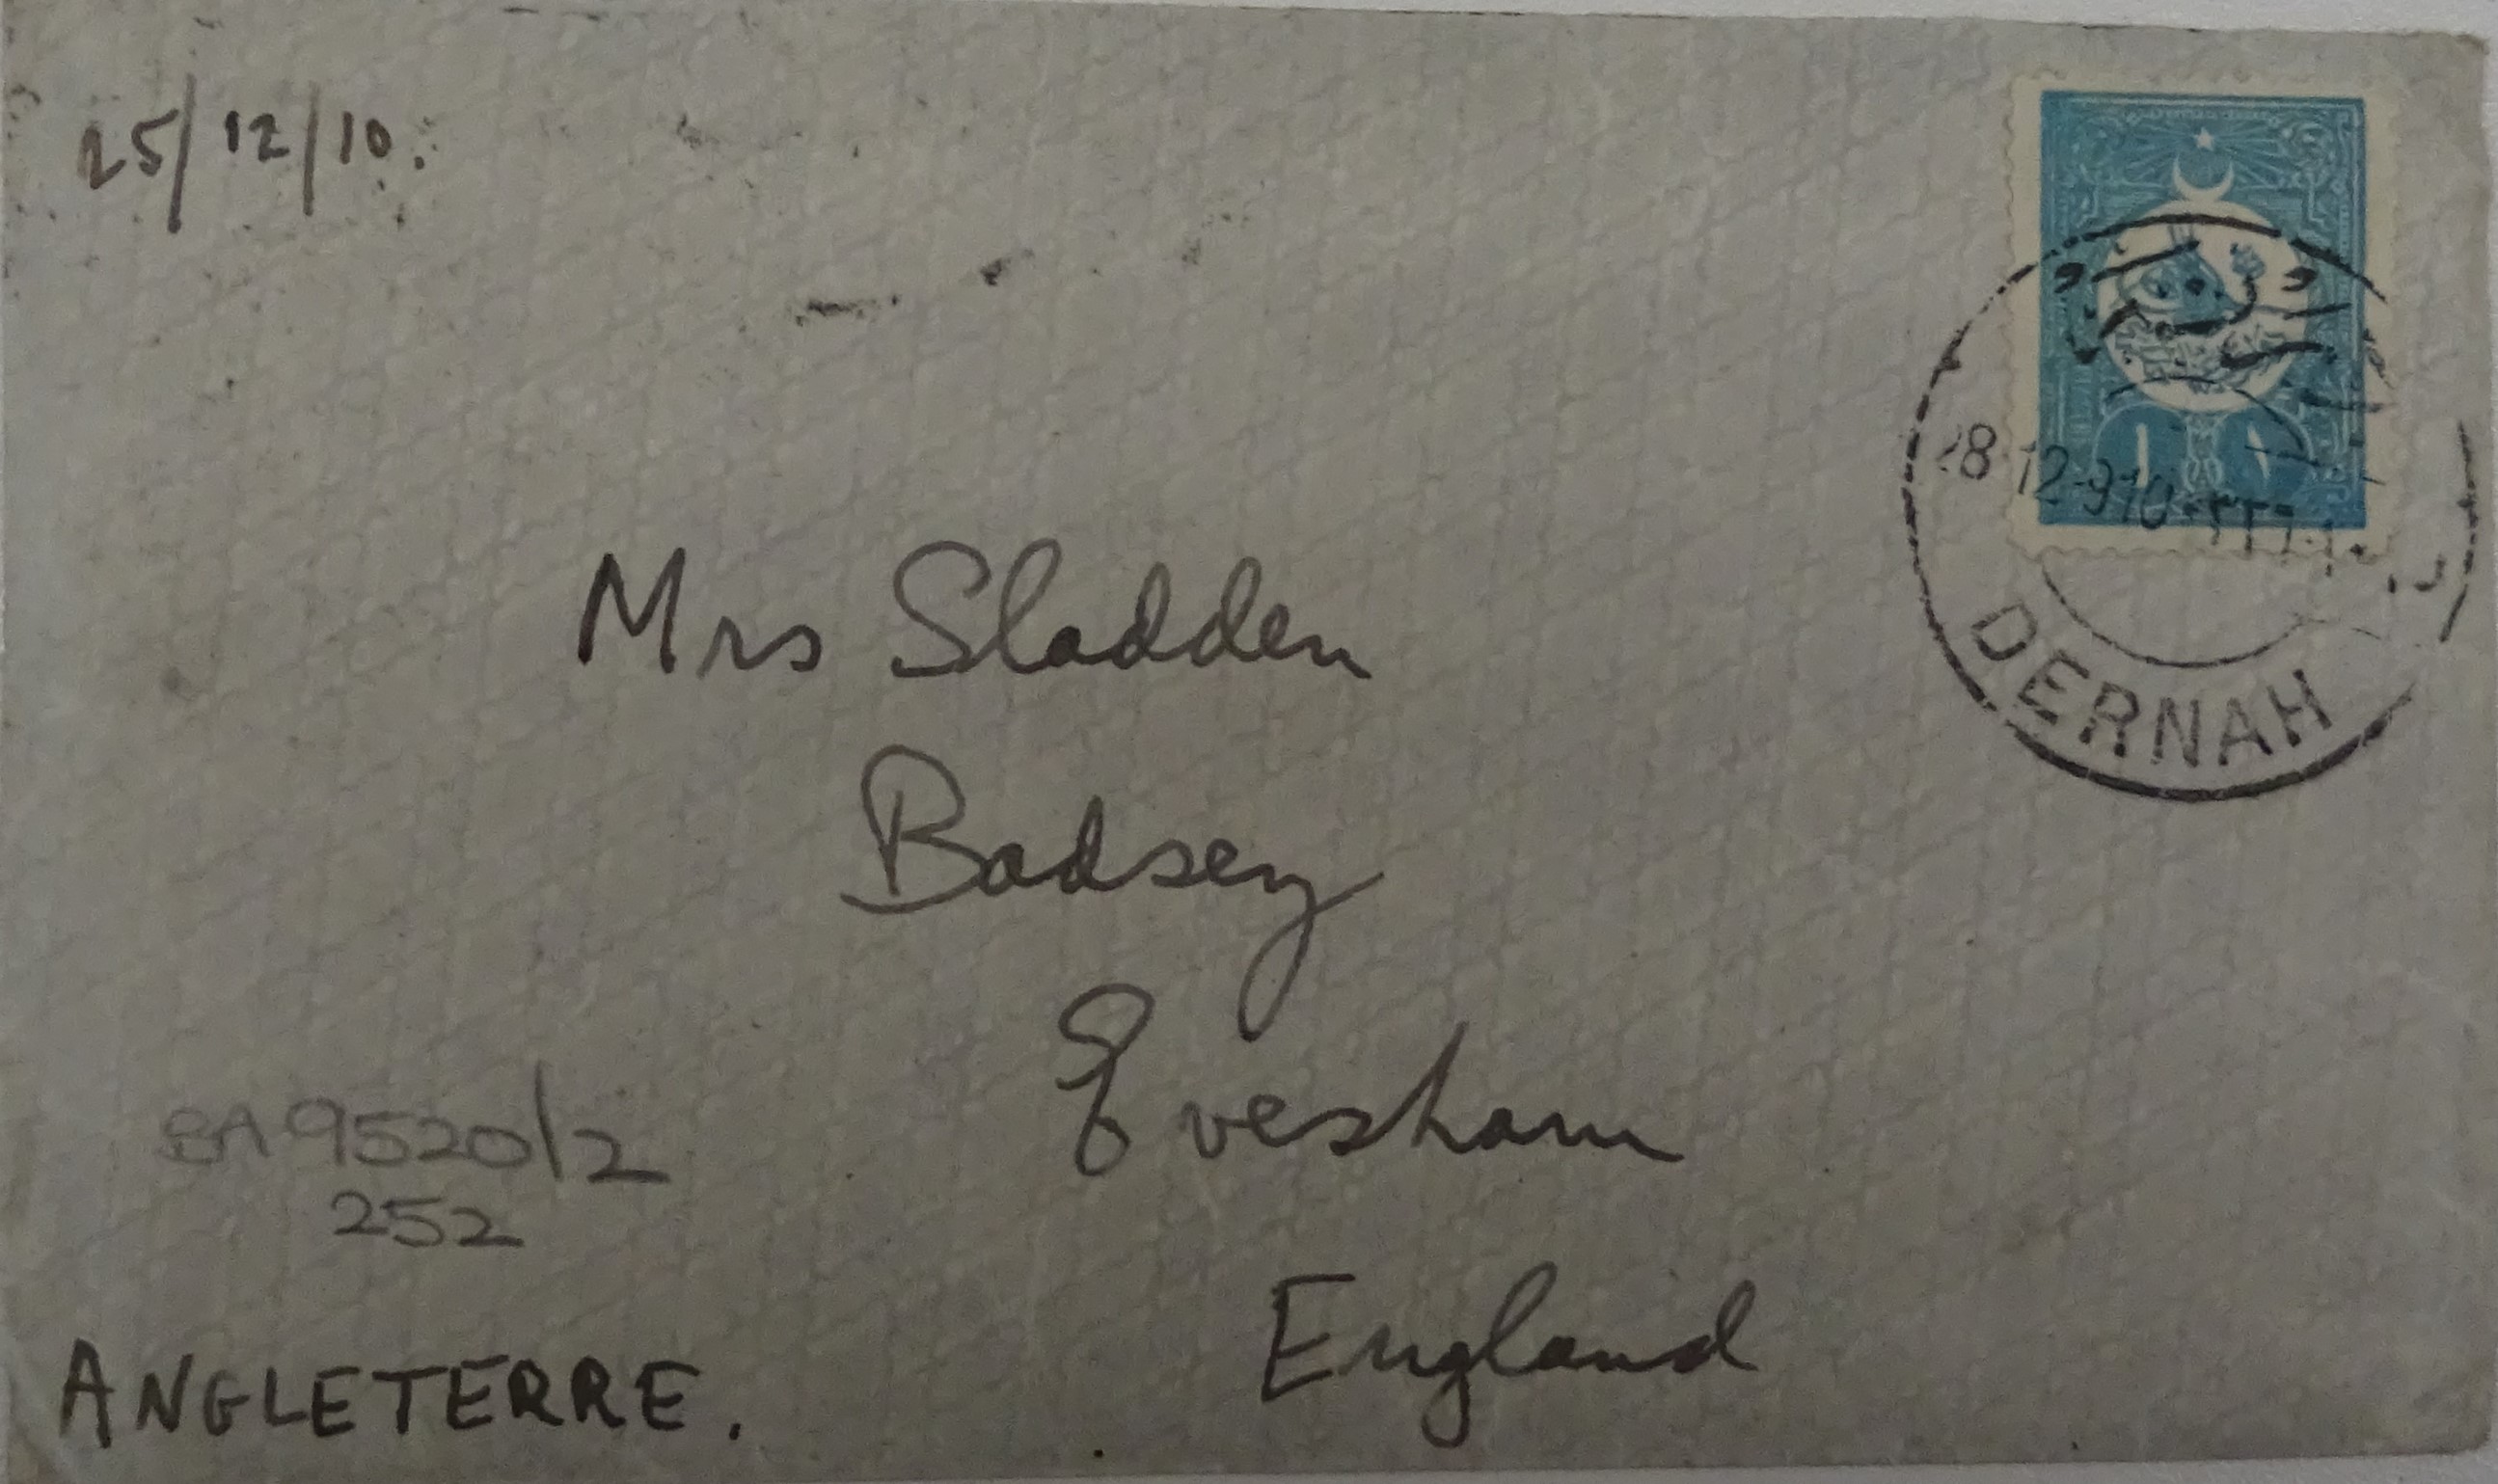 25/12/10.
28 12-910
DERNAH
Mrs Sladden
Badsey
Evesham
England
BA9520/2
252
ANGLETERRE.